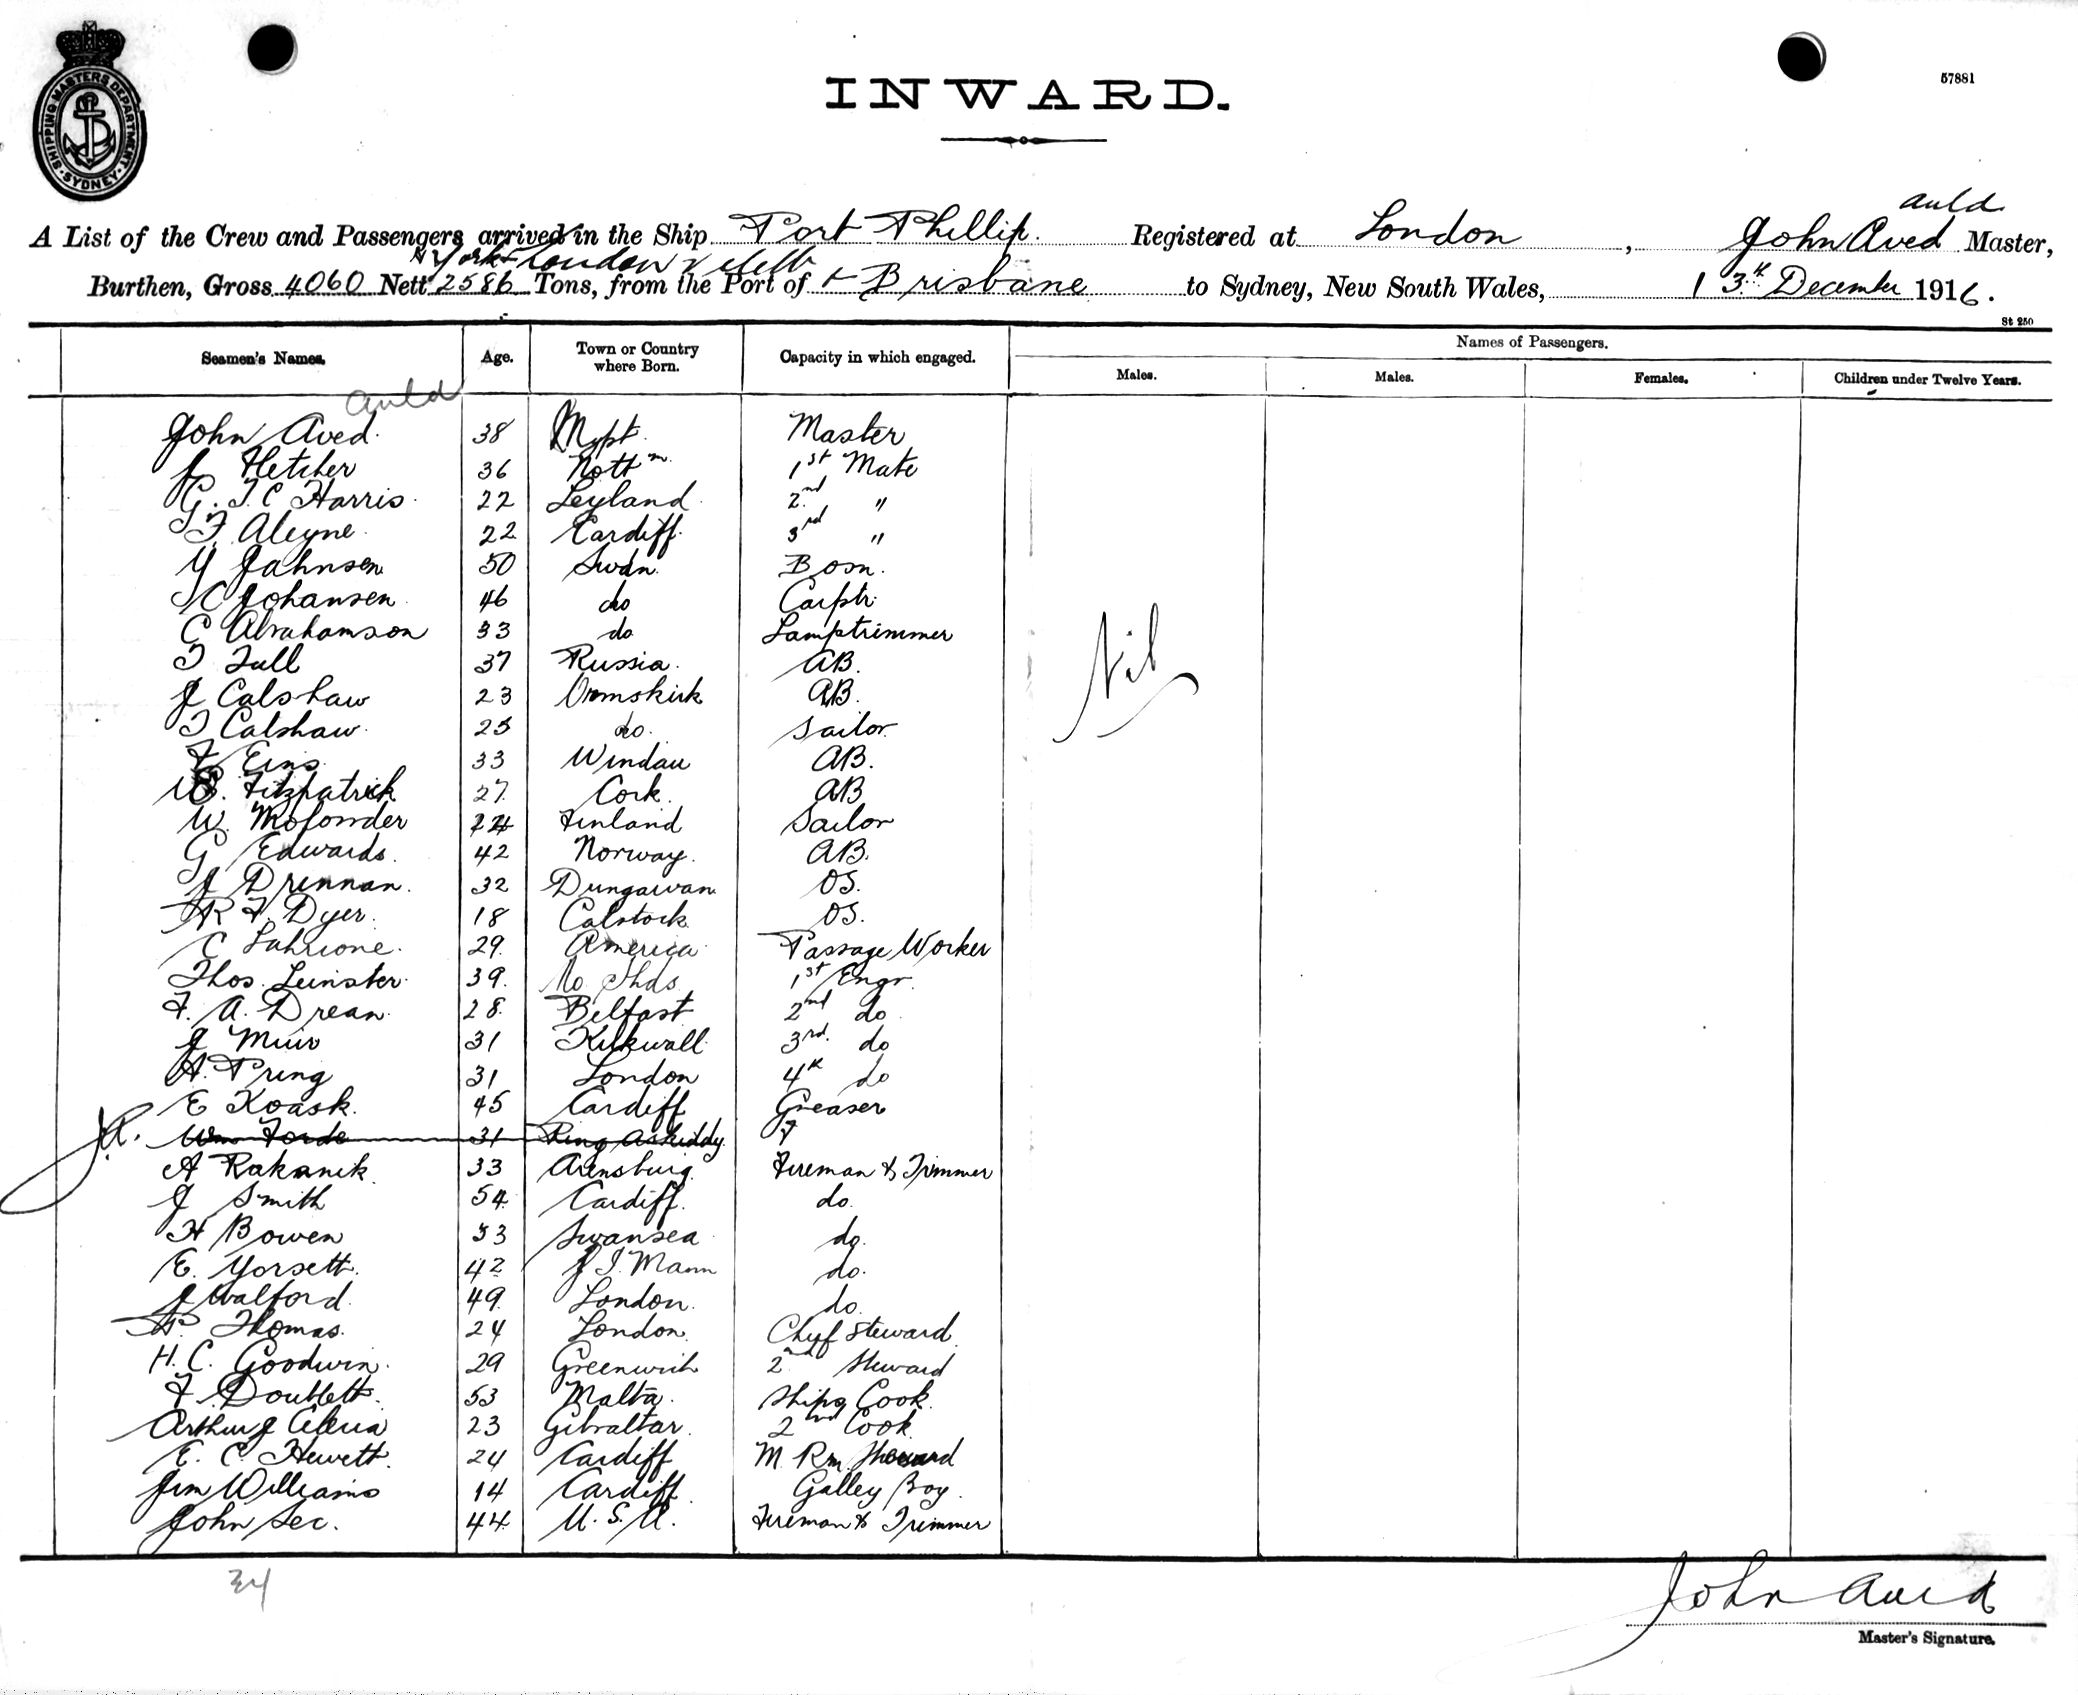 SHIPPING MASTERS DEPARTMENT. SYDNEY
57881
INWARD.
Auld
A List of the Crew and Passengers arrived in the Ship Port Phillip. Registered at London, John Aved Master,
N York London & Melb
Burthen, Gross 4060 Nett 2586 Tons, from the Port of + Brisbane to Sydney, New South Wales, 13th December 1916.
St 250
Seamen's Names. Age. Town or Country where Born. Capacity in which engaged. Names of Passengers.
Males. Males. Females. Children under Twelve Years.
Auld
John Aved. 38 Mpt. Master
J Fletcher 36 Nottm. 1st Mate
G. T. C Harris. 22 Leyland. 2nd "
T F. Aleyne. 22 Cardiff. 3rd "
Y Jahnsen 50 Swdn. Bosn.
K Johansen. 46 do Carptr.
C Abrahamson 33 do Lamptrimmer
T Tull 37 Russia. AB.
J Calshaw 23 Ormskirk AB.
T Calshaw. 23 do. Sailor
F Eins. 33 Windau AB.
Fitzpatrick 27. Cork. AB
W. 24 Finland Sailor
G Edwards. 42 Norway. AB.
J Drennan. 32 Dungarvan OS.
R F. Dyer. 18 Calstock OS.
C Lahrione. 29. America Passage Worker
Thos. Leinster. 39. No. Shds. 1st Engr.
F. A. Drean. 28. Belfast 2nd do
J Muir 31 Kirkwall. 3rd. do
A. Pring 31 London 4th do
E Koask. 45 Cardiff Greaser
J.A. Wm Forde 31 Ring Askiddy.
A Rakanik. 33 Arensburg. Fireman & Trimmer
J Smith 54. Cardiff. do.
H Bowen 33 Swansea do.
E. Yorsett. 42 I. Mann do.
J Walford. 49. London. do.
P. Thomas. 24 London. Chief Steward.
H. C. Goodwin. 29 Greenwich 2nd Steward
F. Doublett. 53 Malta. Ships Cook.
Arthur J 23 Gibraltar. 2nd Cook.
E. C. Hewett. 24 Cardiff M. Rm. Steward
Jim Williams 14 Cardiff. Galley Boy.
John Lee. 44. U. S. A. Fireman & Trimmer
Nil
34
John Auld
Master's Signature.